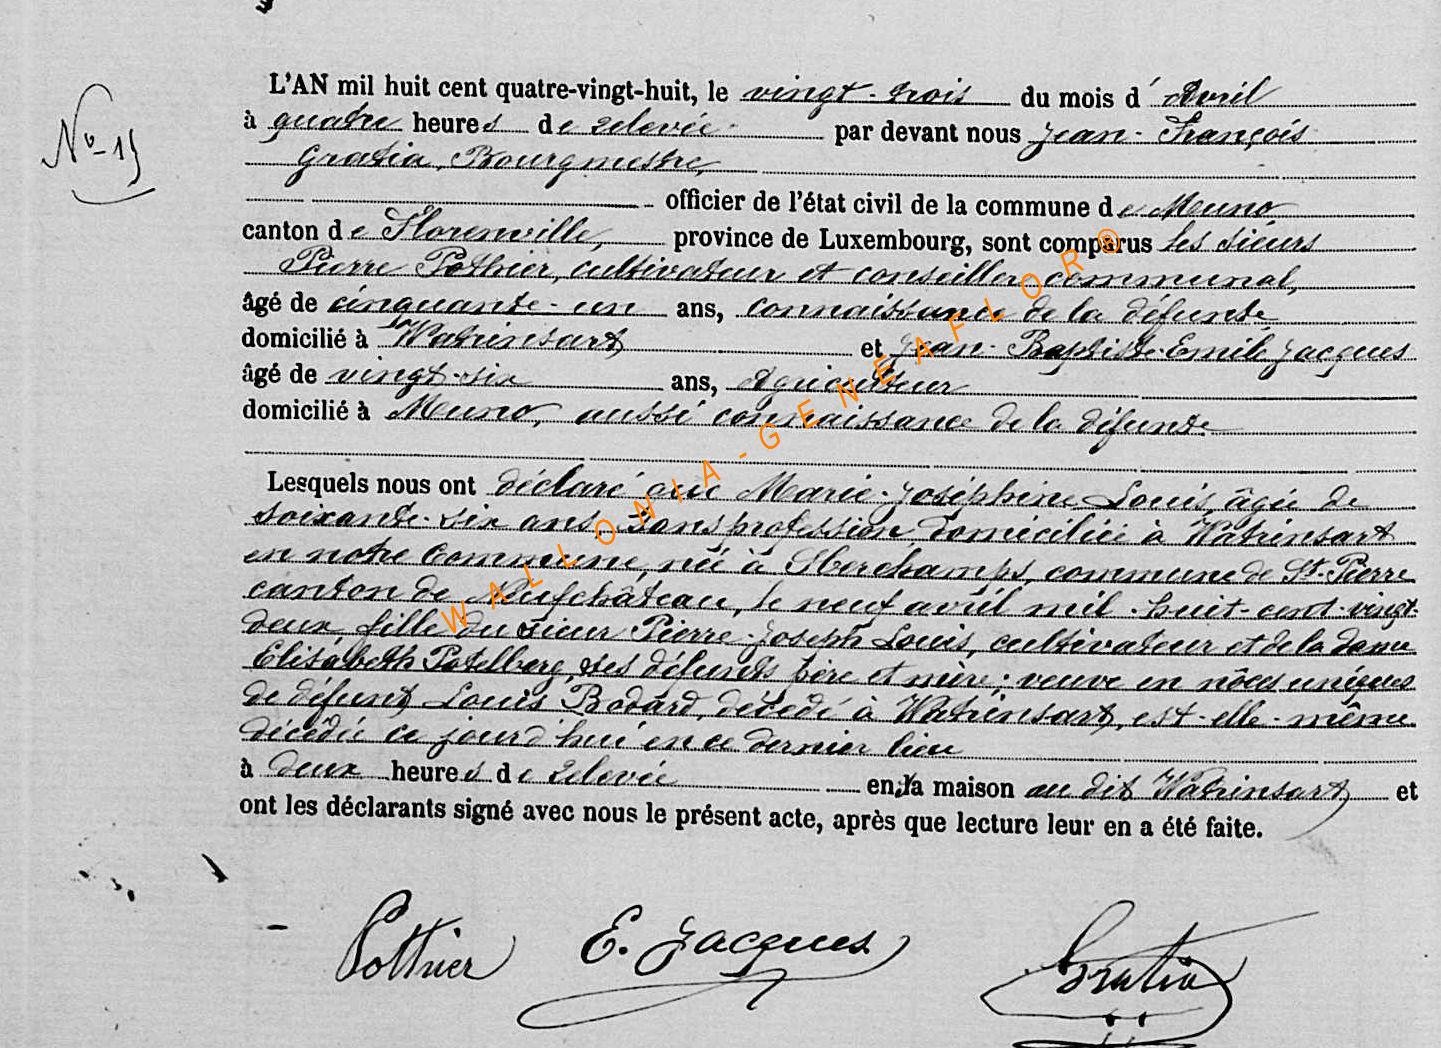 L'AN mil huit cent quatre-vingt-huit, le vingt-trois du mois d'Avril
à quatre heures de relevée par devant nous Jean-François
Gratia, Bourgmestre,
officier de l'état civil de la commune de Muno,
canton de Florenville, province de Luxembourg, sont comparus les sieurs
Pierre Pothier, cultivateur et conseiller communal,
âgé de cinquante-un ans, connaissance de la défunte
domicilié à Watrinsart et Jean-Baptiste-Emile Jacques
âgé de vingt-six ans, Agriculteur
domicilié à Muno, aussi connaissance de la défunte
Lesquels nous ont déclaré que Marie-Joséphine Louis, âgée de
soixante-six ans, sans profession, domiciliée à Watrinsart
en notre commune, née à Sberchamps, commune de St-Pierre
canton de Neufchâteau, le neuf avril mil-huit-cent-vingt-
deux, fille du sieur Pierre-Joseph Louis, cultivateur et de la dame
Elisabeth, ses défunts père et mère; veuve en nôces uniques
de défunt Louis Bodard, décédé à Watrinsart, est-elle-même
décédée ce jourd'hui en ce dernier lieu
à deux heures de relevée en la maison au dit Watrinsart et
ont les déclarants signé avec nous le présent acte, après que lecture leur en a été faite.
Pothier E. Jacques Gratia
No-15
WALLONIA-GENEAFLOR®